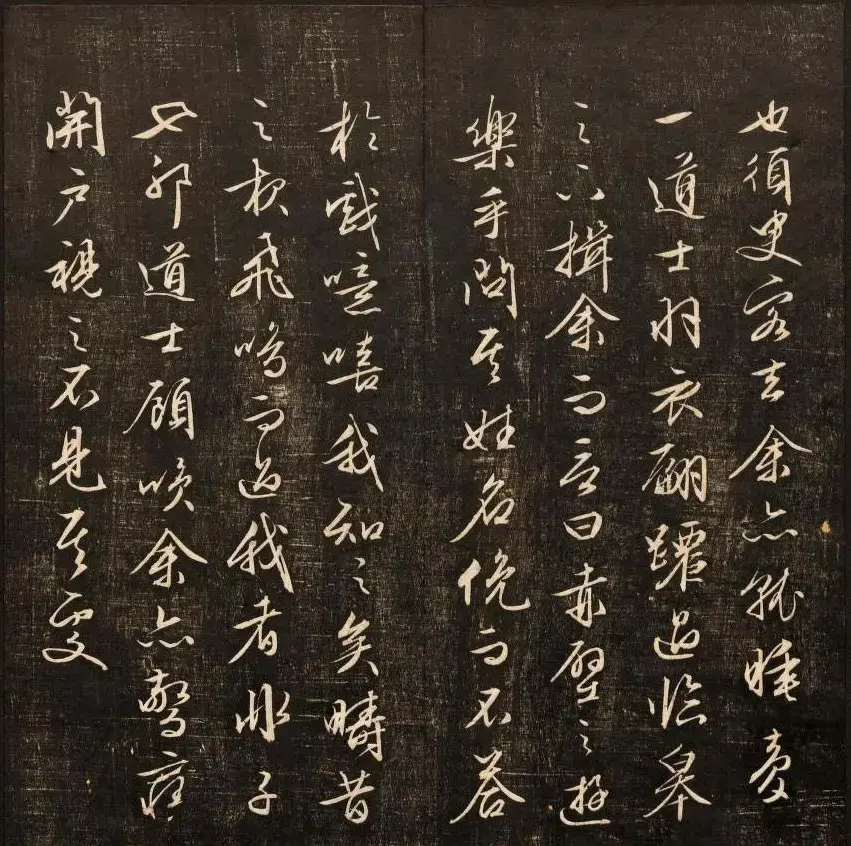 也須臾客去余亦就睡夢
一道士羽衣翩躚過臨皋
之下揖余而言曰赤壁之遊
樂乎問其姓名俛而不答
於戲噫嘻我知之矣疇昔
之夜飛鳴而過我者非子
也耶道士顧笑余亦驚寤
開户視之不見其處